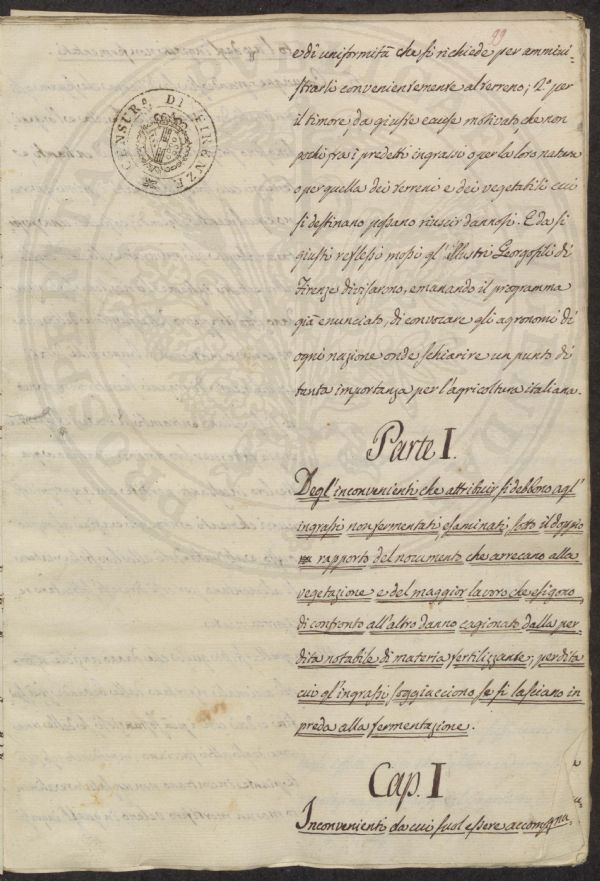 99
e di uniformità che si richiede per ammini-
strarli convenientemente al terreno; 2.° per
il timore, da giuste cause motivato, che non
pochi fra i predetti ingrassi o per la loro natura
o per quella dei terreni e dei vegetabili cui
si destinano possano riuscir dannosi. E da sì
giusti riflessi mossi gl'illustri Georgofili di
Firenze divisarono, emanando il programma
già enunciato, di convocare gli agronomi di
ogni nazione onde schiarire un punto di
tanta importanza per l'agricoltura italiana.
CENSURA DI FIRENZE
Parte I.
Degl'inconvenienti che attribuir si debbono agl'
ingrassi non fermentati esaminati sotto il doppio
rapporto del nocumento che arrecano alla
vegetazione e del maggior lavoro che esigono,
di confronto all'altro danno cagionato dalla per-
dita notabile di materia fertilizzante, perdita
cui gl'ingrassi soggiacciono se si lasciano in
preda alla fermentazione.
Cap. I
Inconvenienti da cui suol essere accompagna-